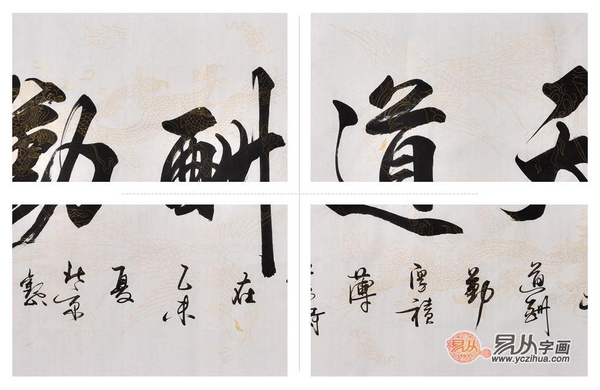 天道酬勤
道酬
勤
厚積
薄
乙未
夏
北京
易从
易从字画
www.yczihua.com